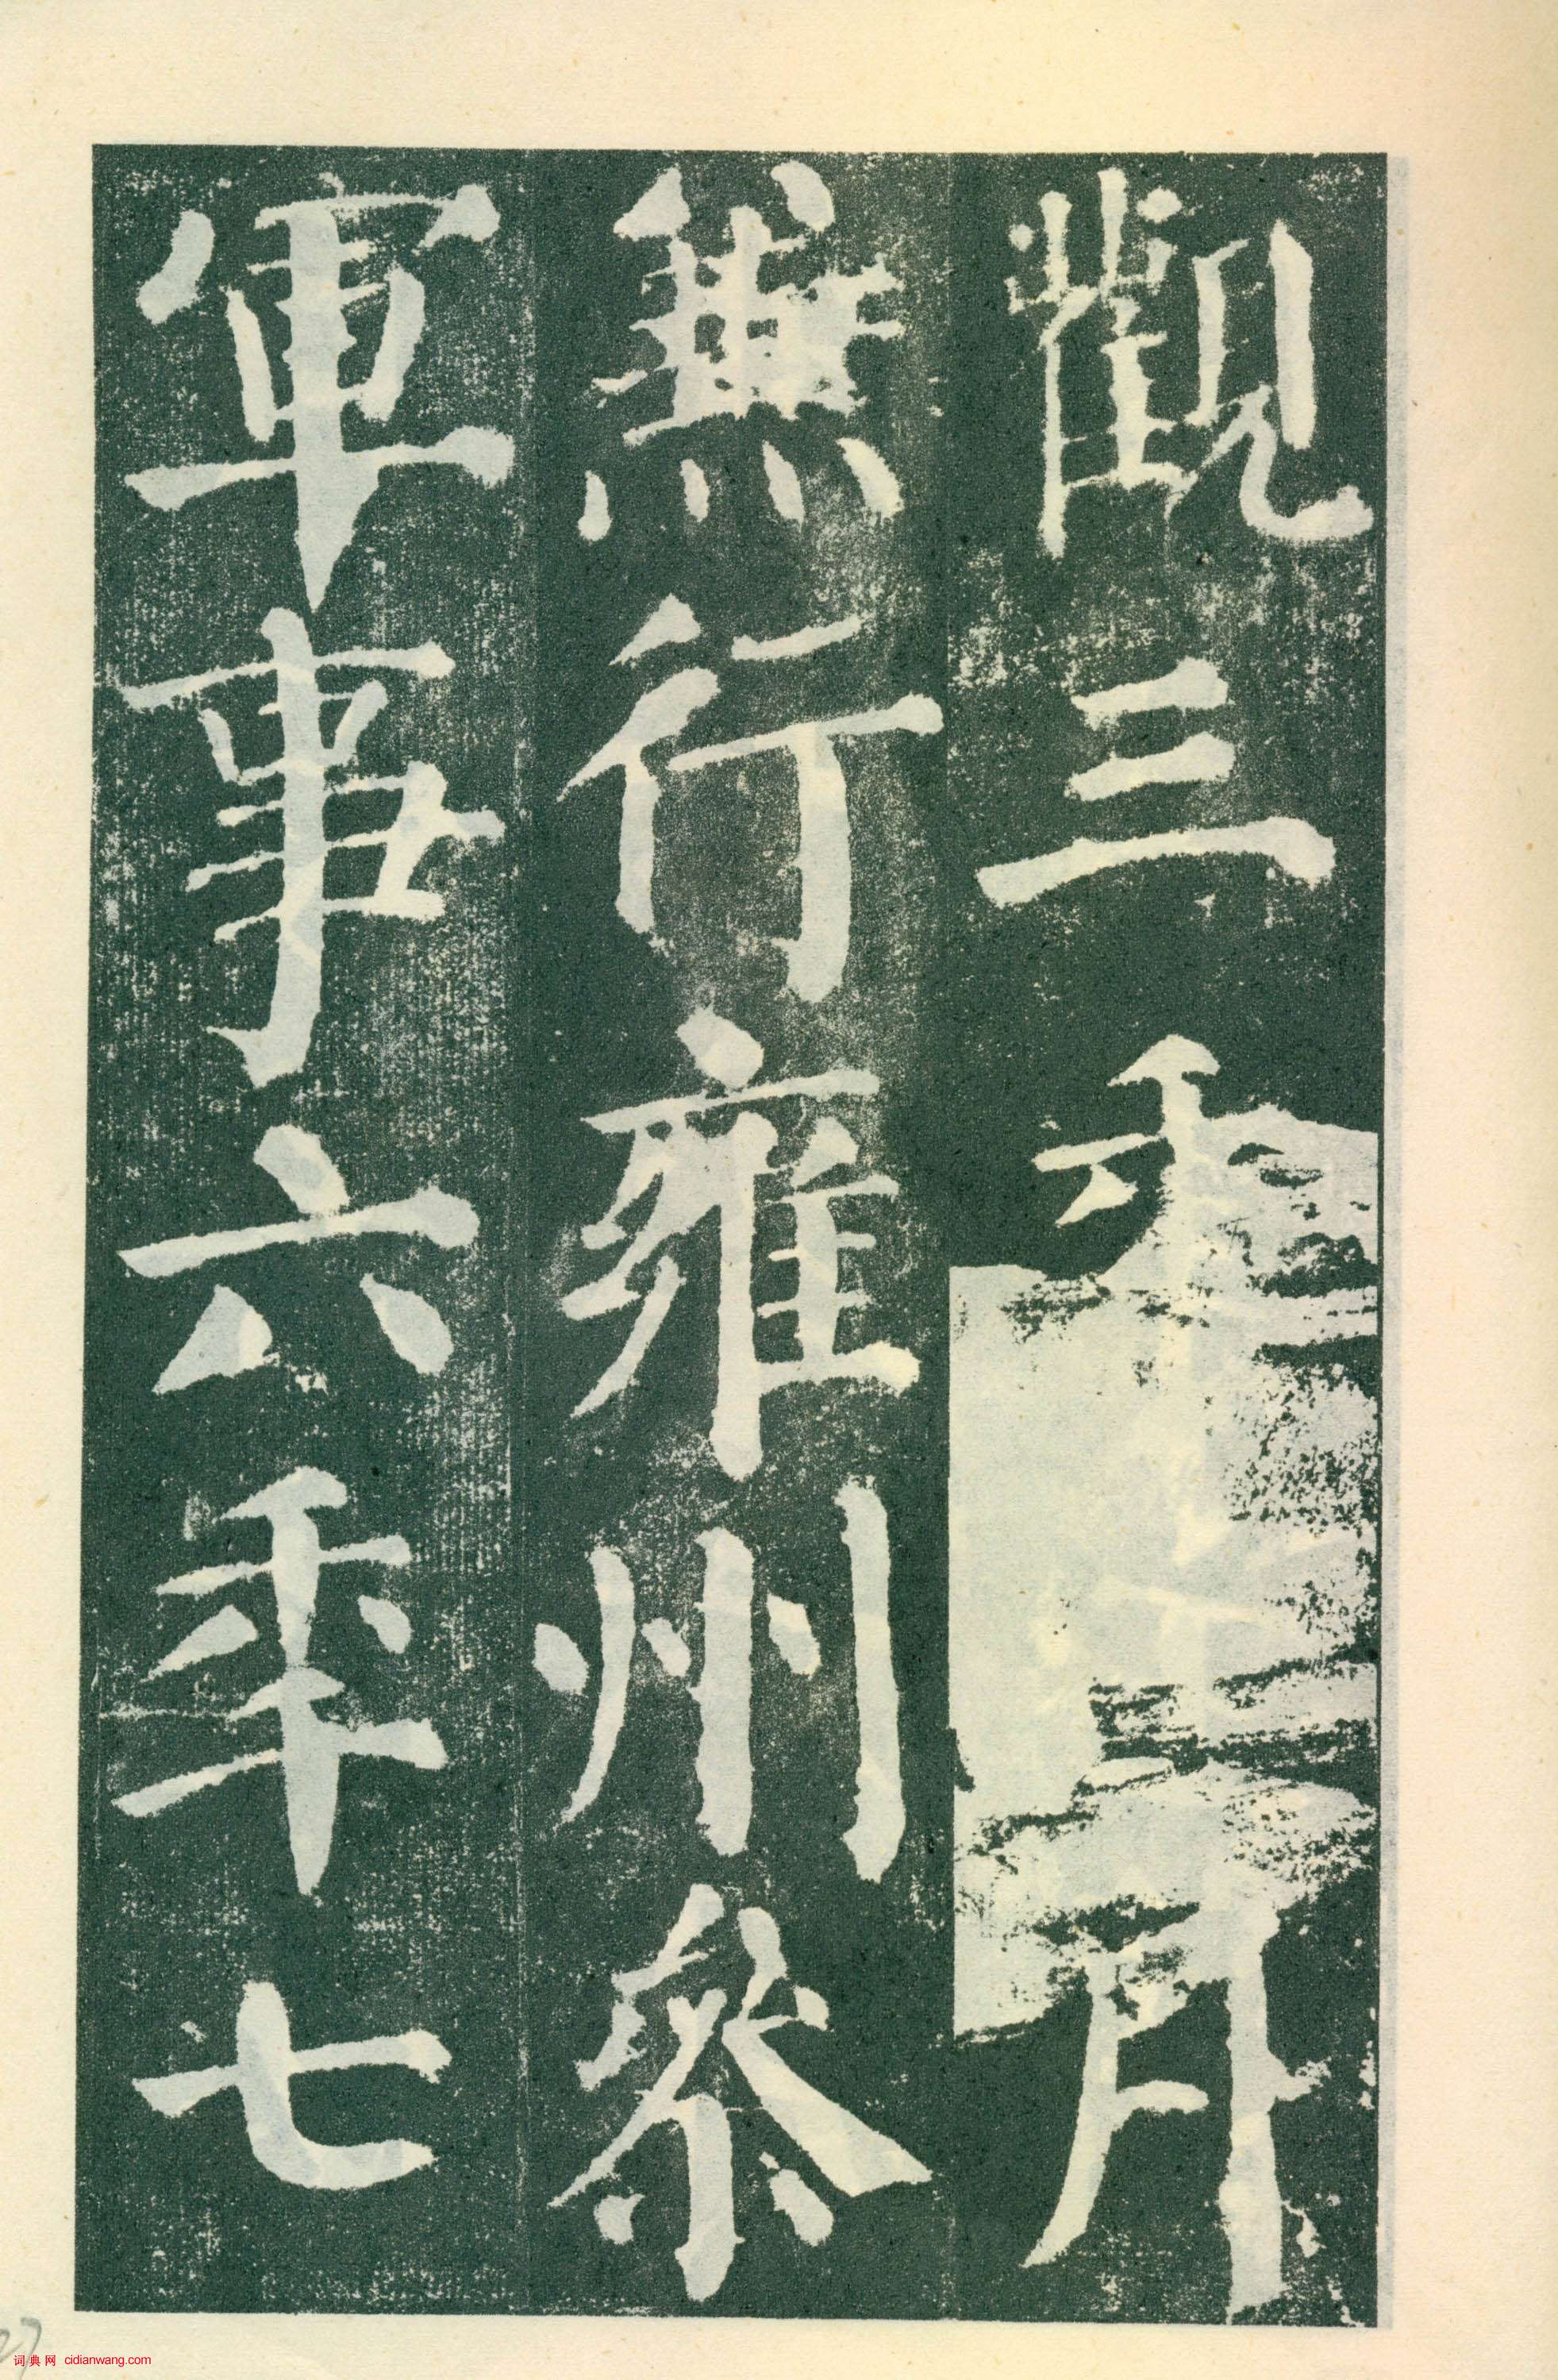 觀三年
月
兼行雍州參
軍事六年七
27
词典网 cidianwang.com